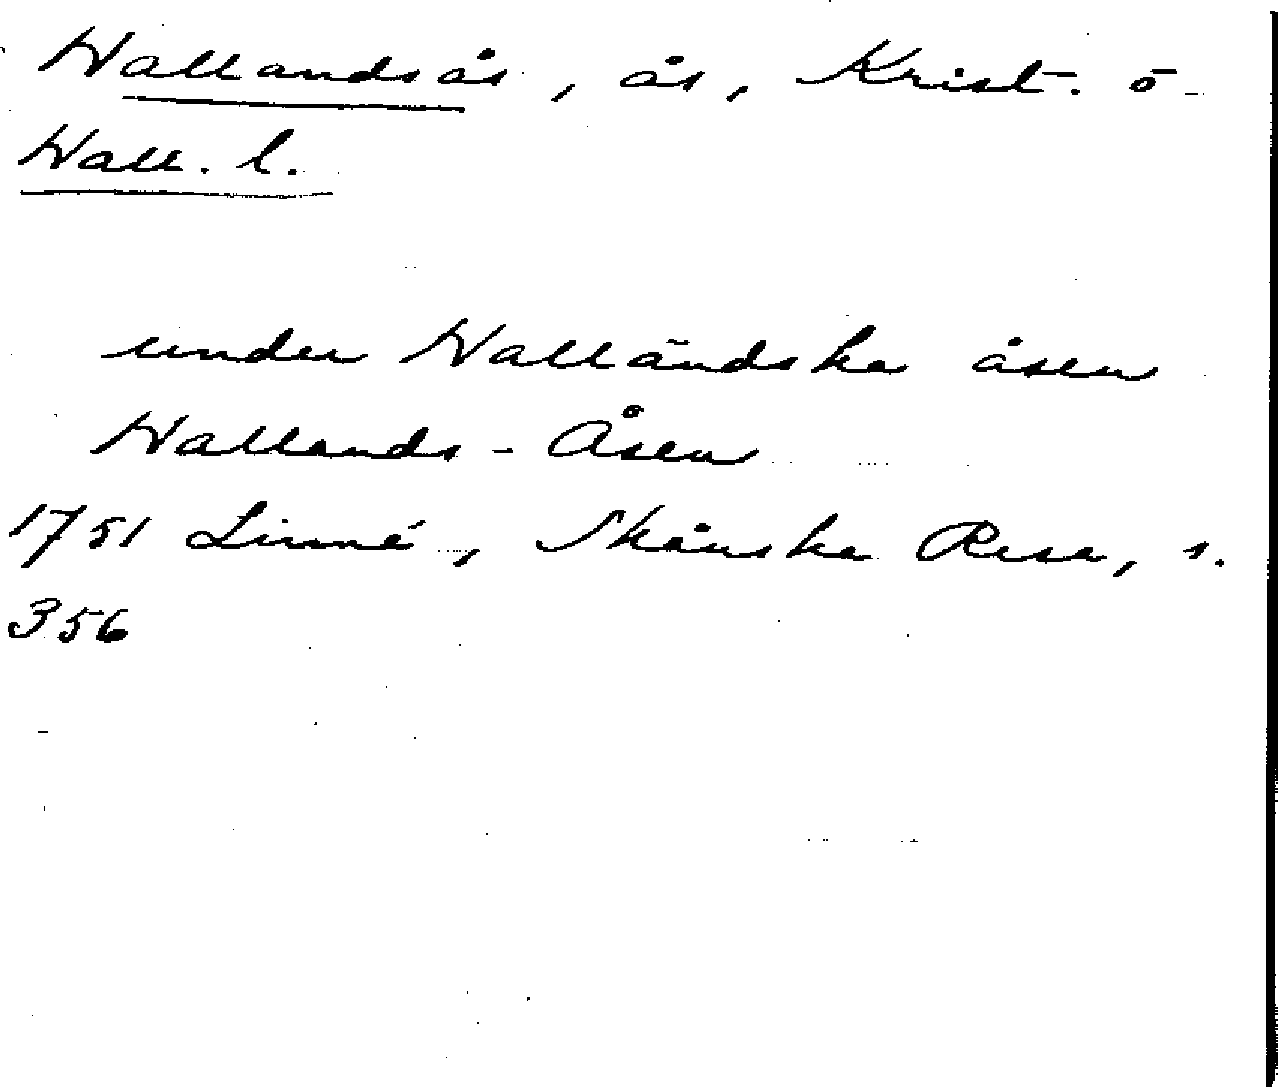 Hallandsås, ås, Krist. ō
Hall. l.
under Halländska åsen
Hallands-Åsen
1751 Linné, Skånska Resa, s.
356